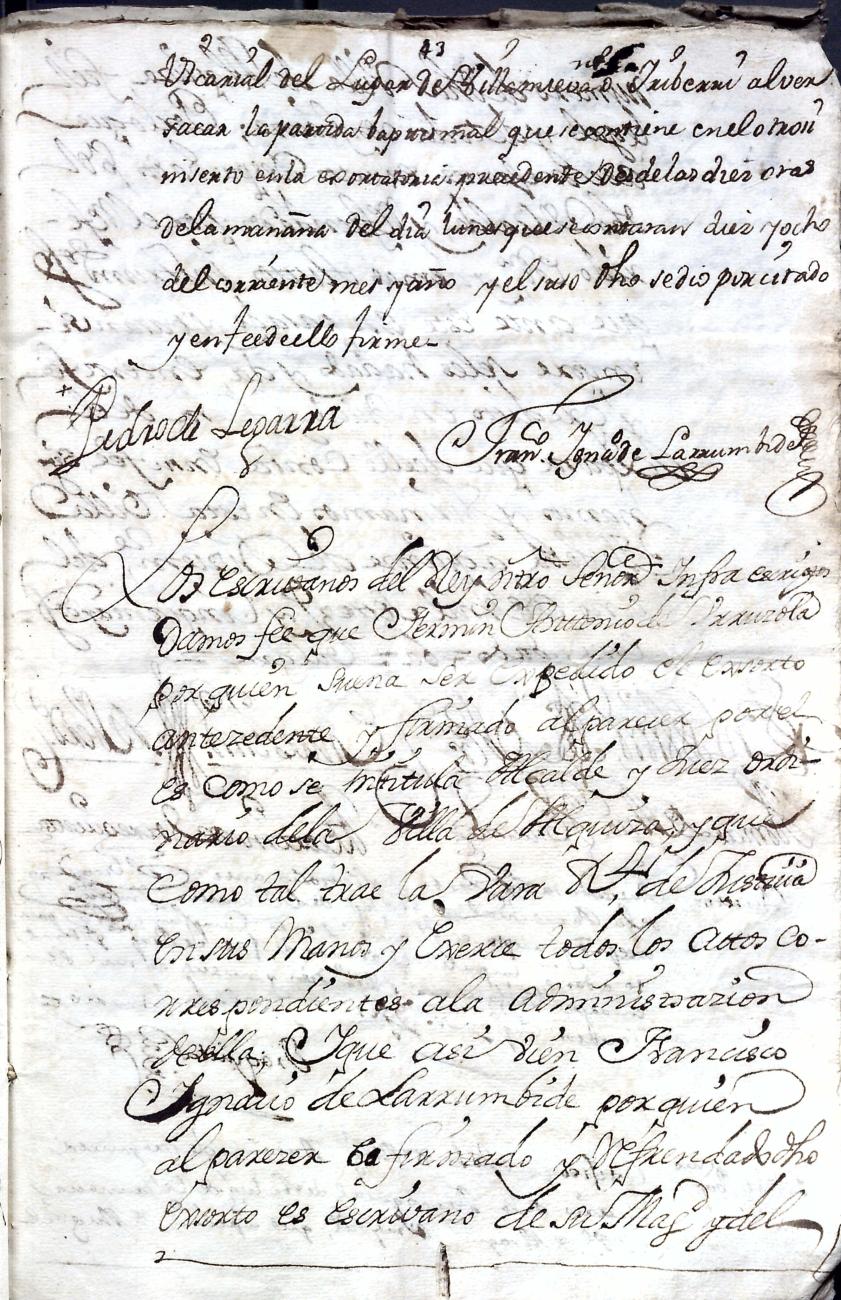 43
Vicarial del Lugar de Villanueva o Iriberri al ver
sacar la partida baptismal que se contiene en el otrosi
inserto en la exortatoria precedente desde las diez oras
de la mañana del dia lunes que se contaran diez y ocho
del corriente mes y año y el suso dho se dio por citado
y en fee de ello firme
Pedro de Legarra
Franco. Igno. de Larrumbide
Los escrivanos del Rey ntro Señor Infra escriptos
Damos fee que Fermin Antonio de Urruzola
por quien suena ser expedido el exsorto
antezedente y firmado al parecer por el
es como se intitula Alcalde y Juez ordi-
nario de la Villa de Alquiza, y que
como tal trae la Vara Rl. de Justicia
en sus Manos y Exerce todos los actos co-
rrespondientes a la administrazion
de ella. Ique asi vien Francisco
Ignacio de Larrumbide por quien
al parezer ba firmado y Refrendado dho
Exsorto es escrivano de su Magd. y del